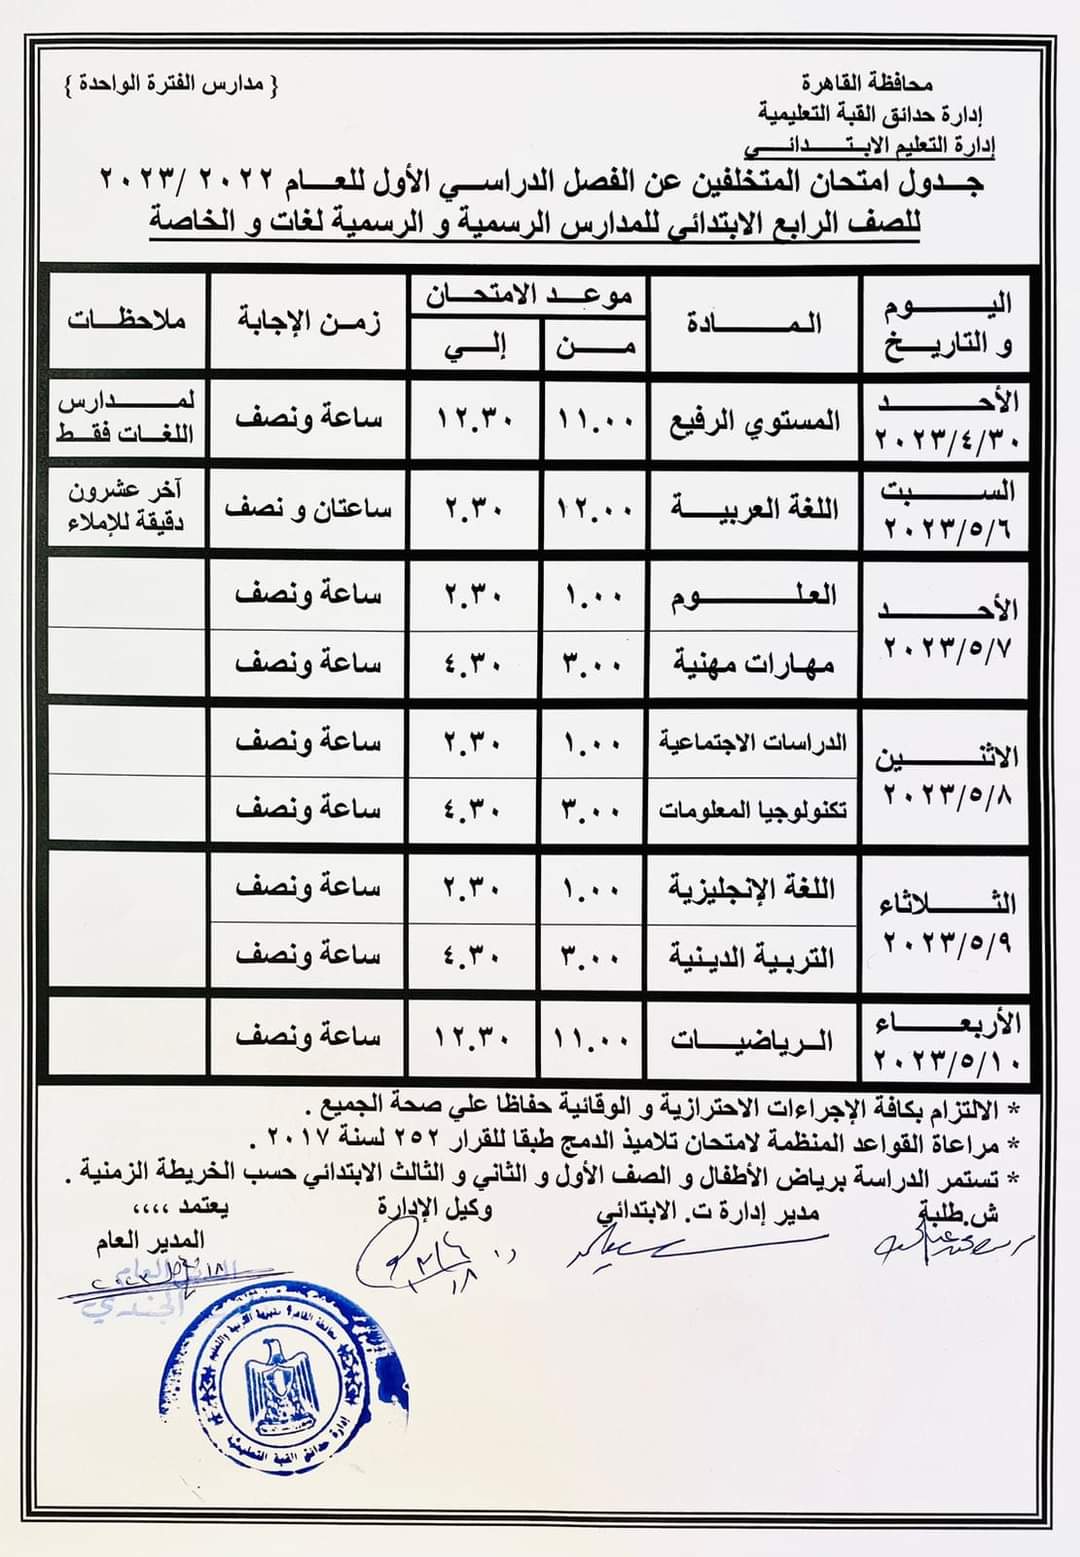 محافظة القاهرة
{ مدارس الفترة الواحدة }
إدارة حدائق القبة التعليمية
إدارة التعليم الابتدائي
جدول امتحان المتخلفين عن الفصل الدراسي الأول للعام ٢٠٢٢ /٢٠٢٣
للصف الرابع الابتدائي للمدارس الرسمية و الرسمية لغات و الخاصة
اليوم و التاريخ المادة موعد الامتحان من إلي زمن الإجابة ملاحظات
الأحد ٢٠٢٣/٤/٣٠ المستوي الرفيع ١١.٠٠ ١٢.٣٠ ساعة ونصف لمدارس اللغات فقط
السبت ٢٠٢٣/٥/٦ اللغة العربية ١٢.٠٠ ٢.٣٠ ساعتان و نصف آخر عشرون دقيقة للإملاء
الأحد ٢٠٢٣/٥/٧ العلوم ١.٠٠ ٢.٣٠ ساعة ونصف
مهارات مهنية ٣.٠٠ ٤.٣٠ ساعة ونصف
الاثنين ٢٠٢٣/٥/٨ الدراسات الاجتماعية ١.٠٠ ٢.٣٠ ساعة ونصف
تكنولوجيا المعلومات ٣.٠٠ ٤.٣٠ ساعة ونصف
الثلاثاء ٢٠٢٣/٥/٩ اللغة الإنجليزية ١.٠٠ ٢.٣٠ ساعة ونصف
التربية الدينية ٣.٠٠ ٤.٣٠ ساعة ونصف
الأربعاء ٢٠٢٣/٥/١٠ الرياضيات ١١.٠٠ ١٢.٣٠ ساعة ونصف
* الالتزام بكافة الإجراءات الاحترازية و الوقائية حفاظا علي صحة الجميع .
* مراعاة القواعد المنظمة لامتحان تلاميذ الدمج طبقا للقرار ٢٥٢ لسنة ٢٠١٧ .
* تستمر الدراسة برياض الأطفال و الصف الأول و الثاني و الثالث الابتدائي حسب الخريطة الزمنية .
ش.طلبة مدير إدارة ت. الابتدائي وكيل الإدارة يعتمد ،،،،
المدير العام
محافظة القاهرة مديرية التربية والتعليم
إدارة حدائق القبة التعليمية